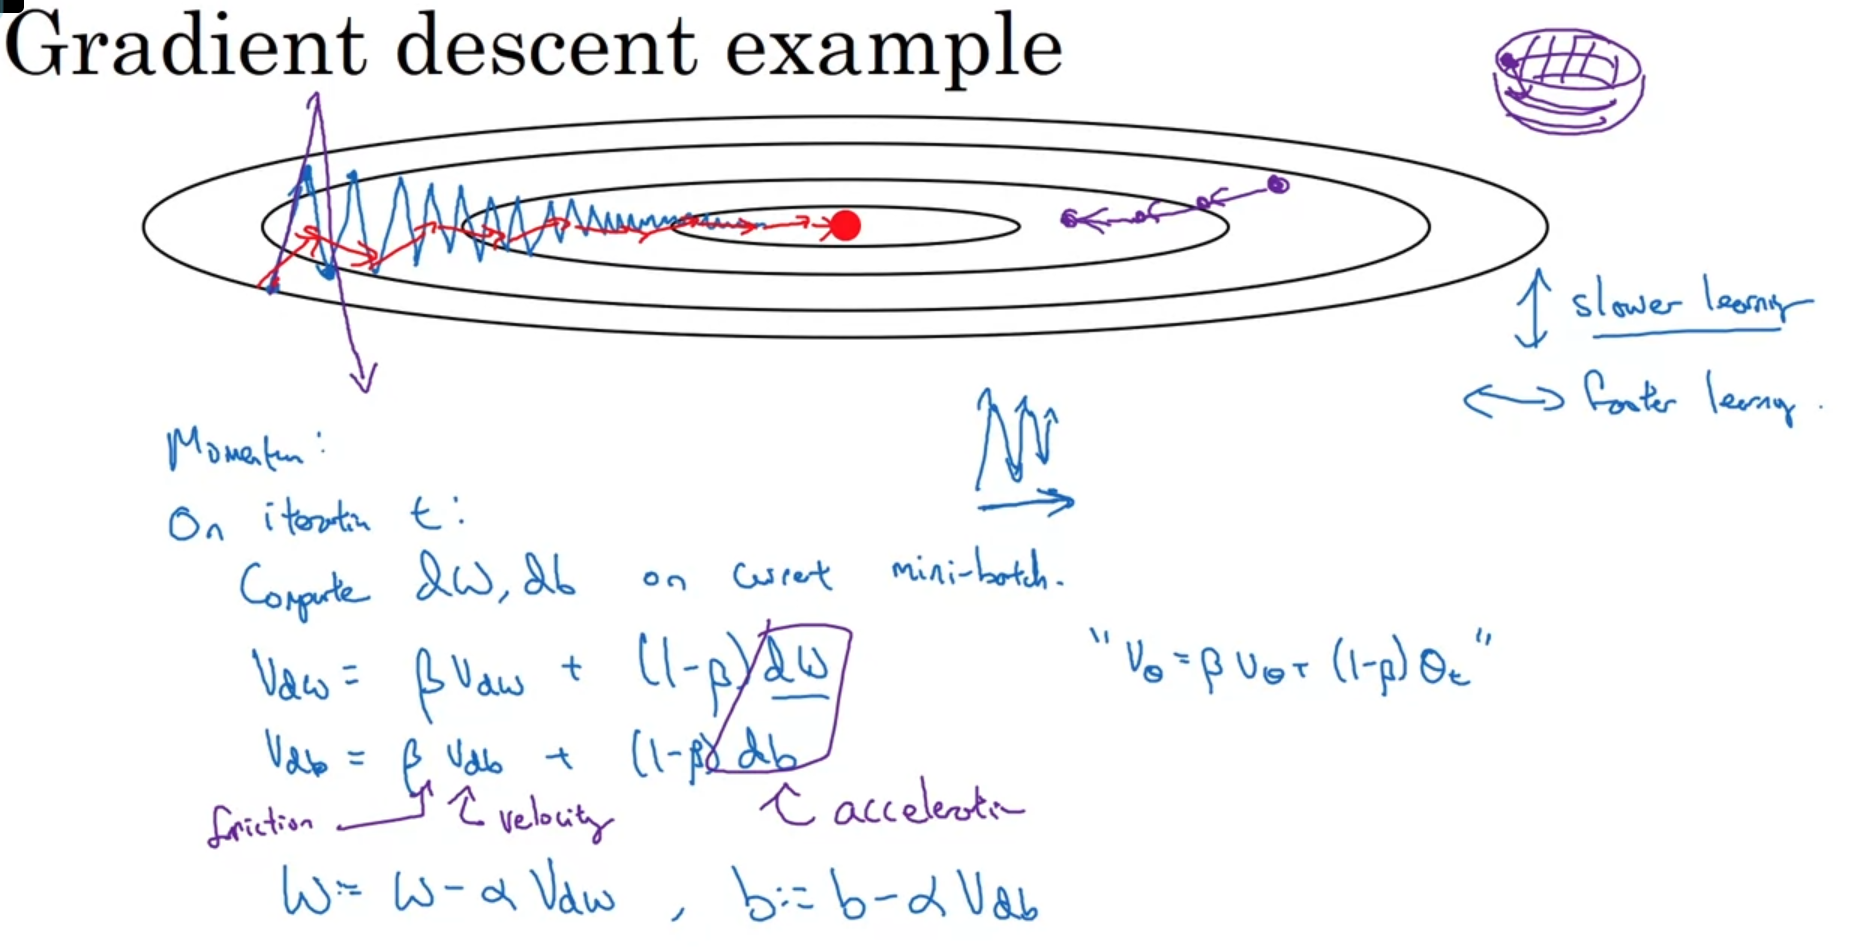 Gradient descent example
↕ slower learning
↔ faster learning.
Momentum:
On iteration t:
Compute dW, db on current mini-batch.
V_dW = β V_dW + (1-β) dW
"V_θ = β V_θ + (1-β) θ_t"
V_db = β V_db + (1-β) db
friction velocity acceleration
W := W - α V_dW , b := b - α V_db